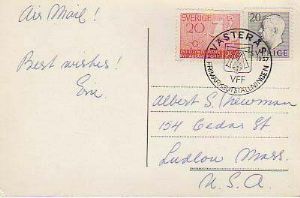 Air Mail!
SVERIGE
20
20
VÄSTERÅS
Best wishes!
VFF
FRIMÄRKSUTSTÄLLNINGEN
SVERIGE
Albert S. Newman
154 Cedar St
Ludlow Mass.
U.S.A.